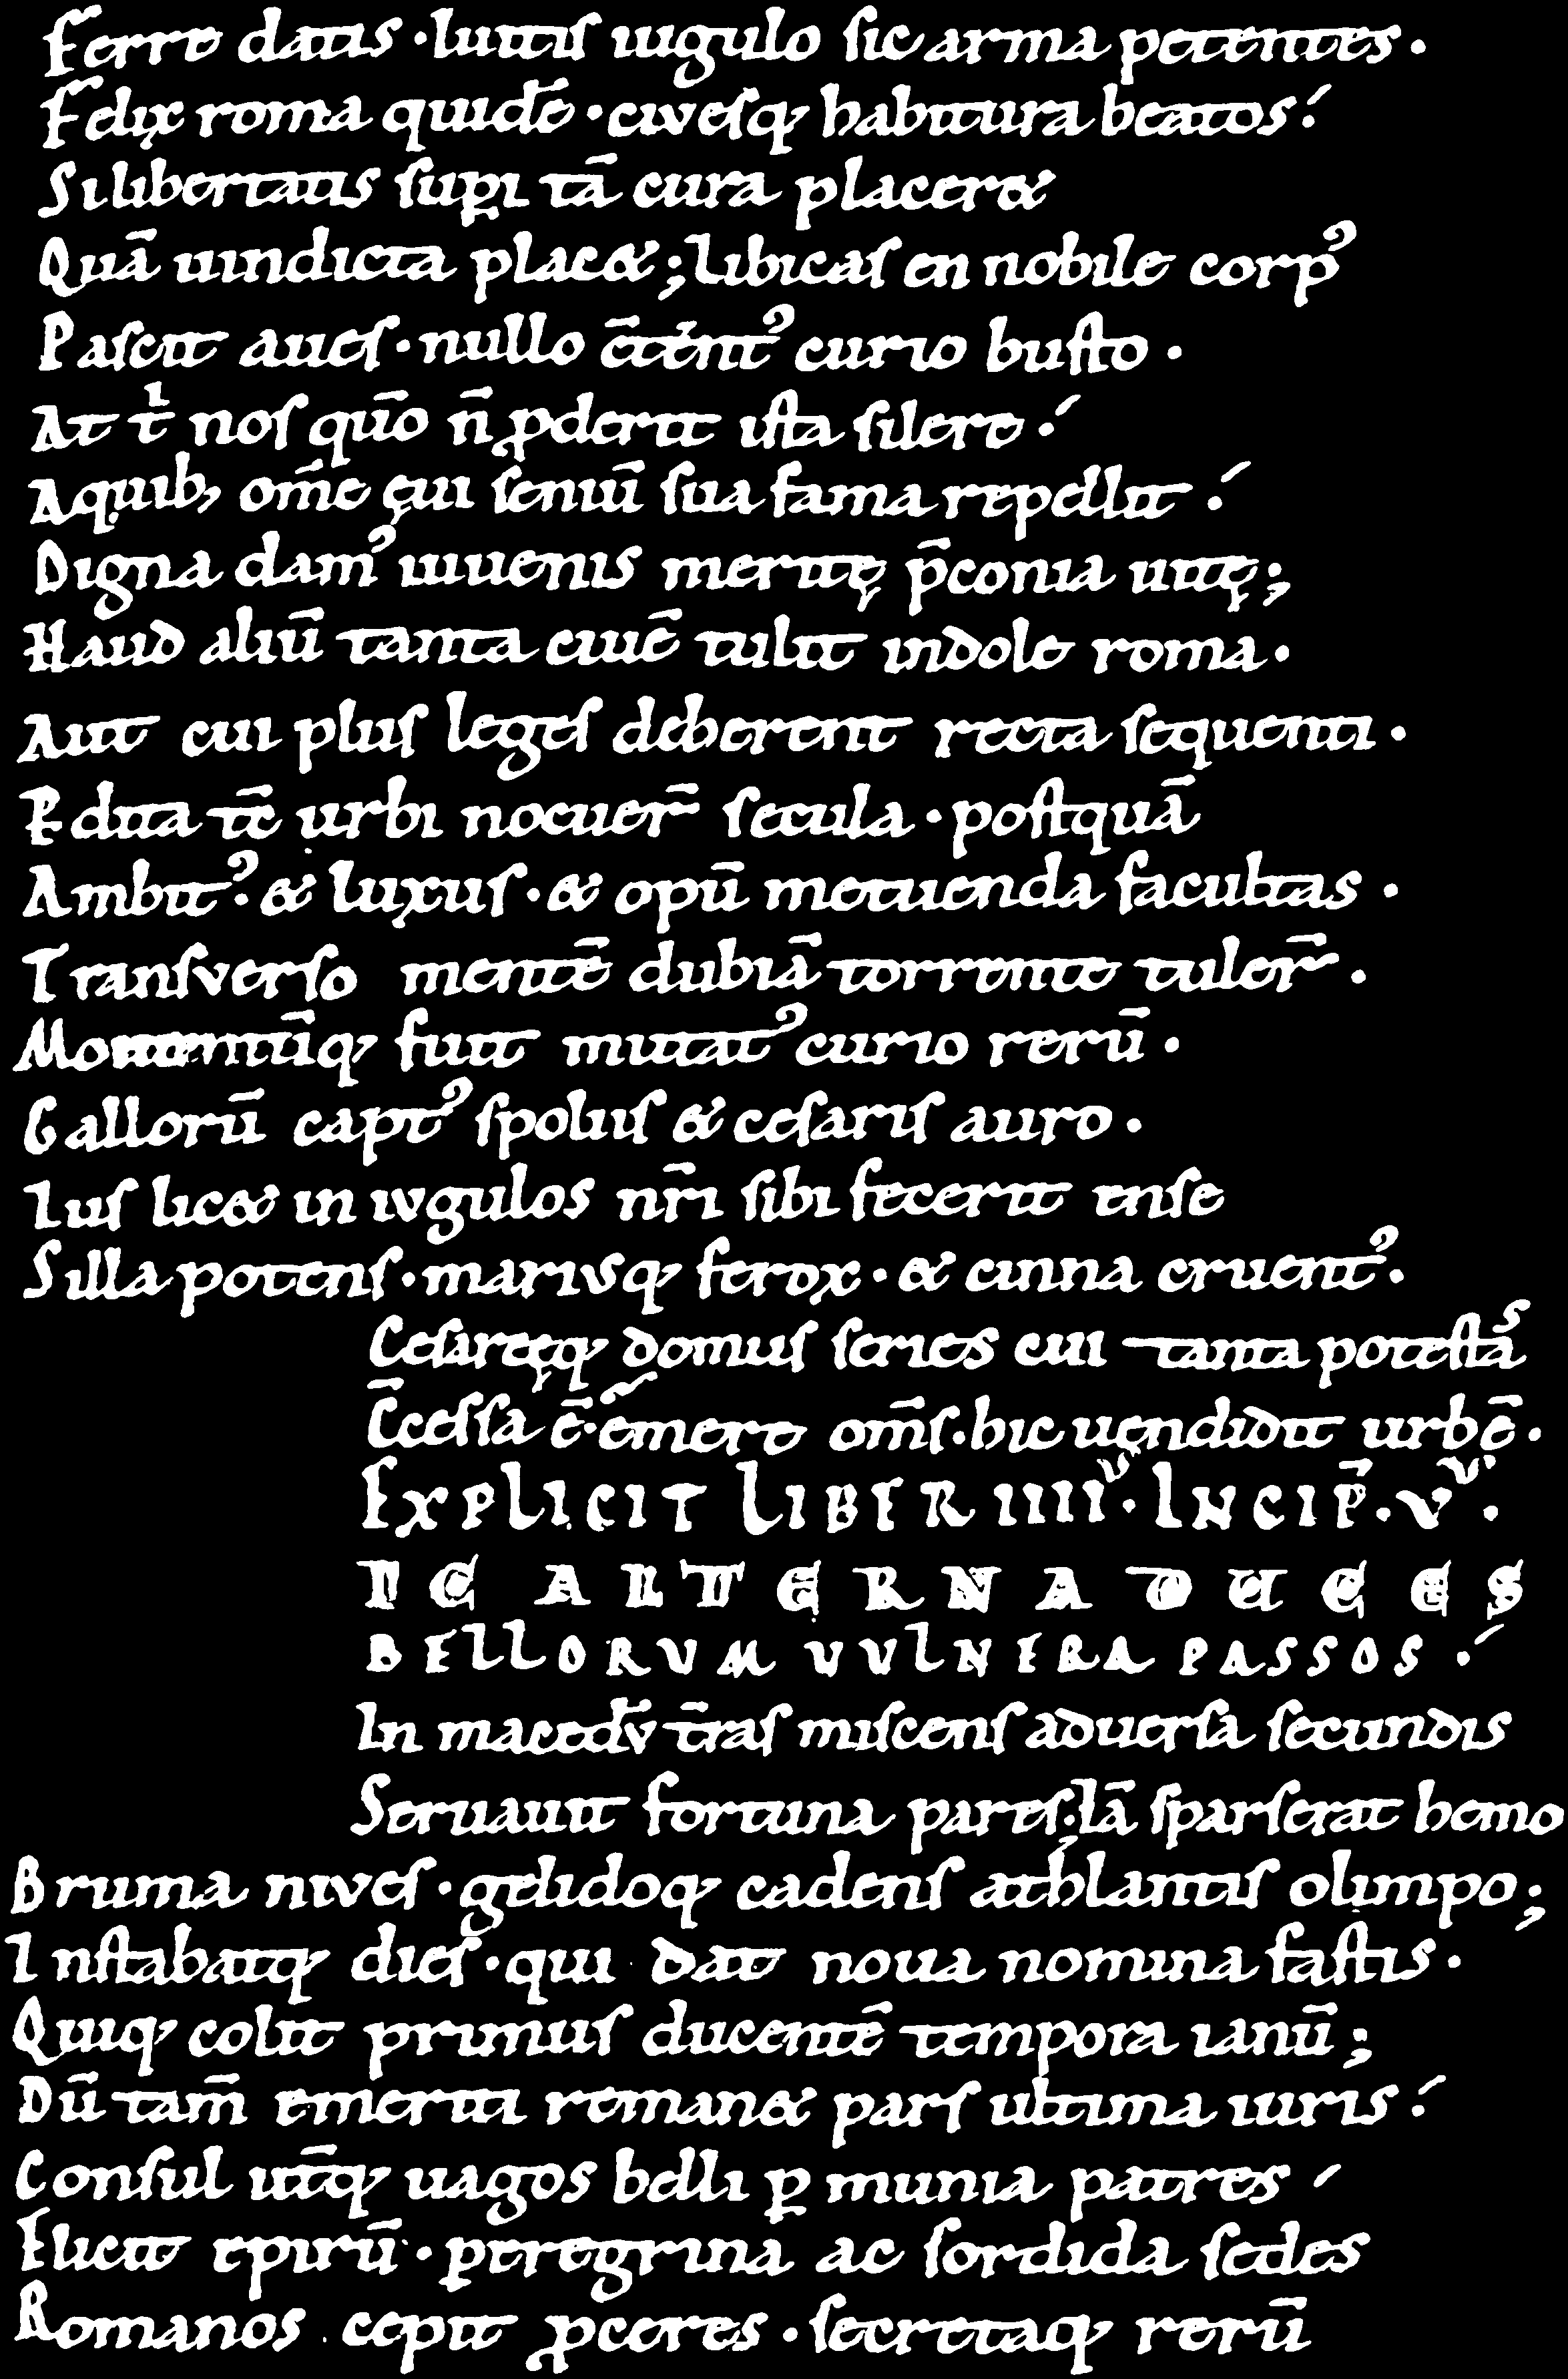 Ferre datis · luitis iugulo sic arma petentes ·
Felix roma quidē · civesq; habitura beatos :
Si libertatis supi tā cura placer&
Quā uindicta plac& ; Libicas en nobile corp᾿
Pascit aues · nullo c̄tent᾿ curio busto ·
At t̄ nos qūo n̄ ꝓderit ista silere :
A quib; om̄e ęui seniū sua fama repellit :
Digna dam᾿ iuuenis meritę p̄conia uitę ;
Haud aliū tanta ciuē tulit indole roma ·
Aut cui plus leges deberent recta sequenti ·
Ꝑdita tc̄ urbi nocuer̄ secula · postquā
Ambit᾿ · & luxus · & opū metuenda facultas ·
Transverso mentē dubiā torrente tuler̄ ·
Momentūq; fuit mutat᾿ curio rerū ·
Gallorū capt᾿ spoliis & cesaris auro ·
Ius lic& in ivgulos nr̄i sibi fecerit ense
Silla potens · marivsq; ferox · & cinna cruent᾿ ·
Cesareęq; domus series cui tanta potestās
C̄cessa ē · emere om̄s · hic uendidit urbē ·
EXPLICIT LIBER IIII · INCIP̄ · V ·
SIC ALTERNA DUCES
BELLORVM VVLNERA PASSOS :
In macedv̄ t̄ras miscens aduersa secundis
Seruauit fortuna pares · Iā sparserat hemo
Bruma nives · gelidoq; cadens athlantis olimpo ;
Instabatq; dies · qui dat noua nomina fastis ·
Quiq; colit primus ducentē tempora ianū ;
Dū tam̄ emeriti reman& pars ultima iuris :
Consul ut̄q; uagos belli ꝑ munia patres
Elicit epirū · peregrina ac sordida sedes
Romanos cepit ꝓceres · secretaq; rerū